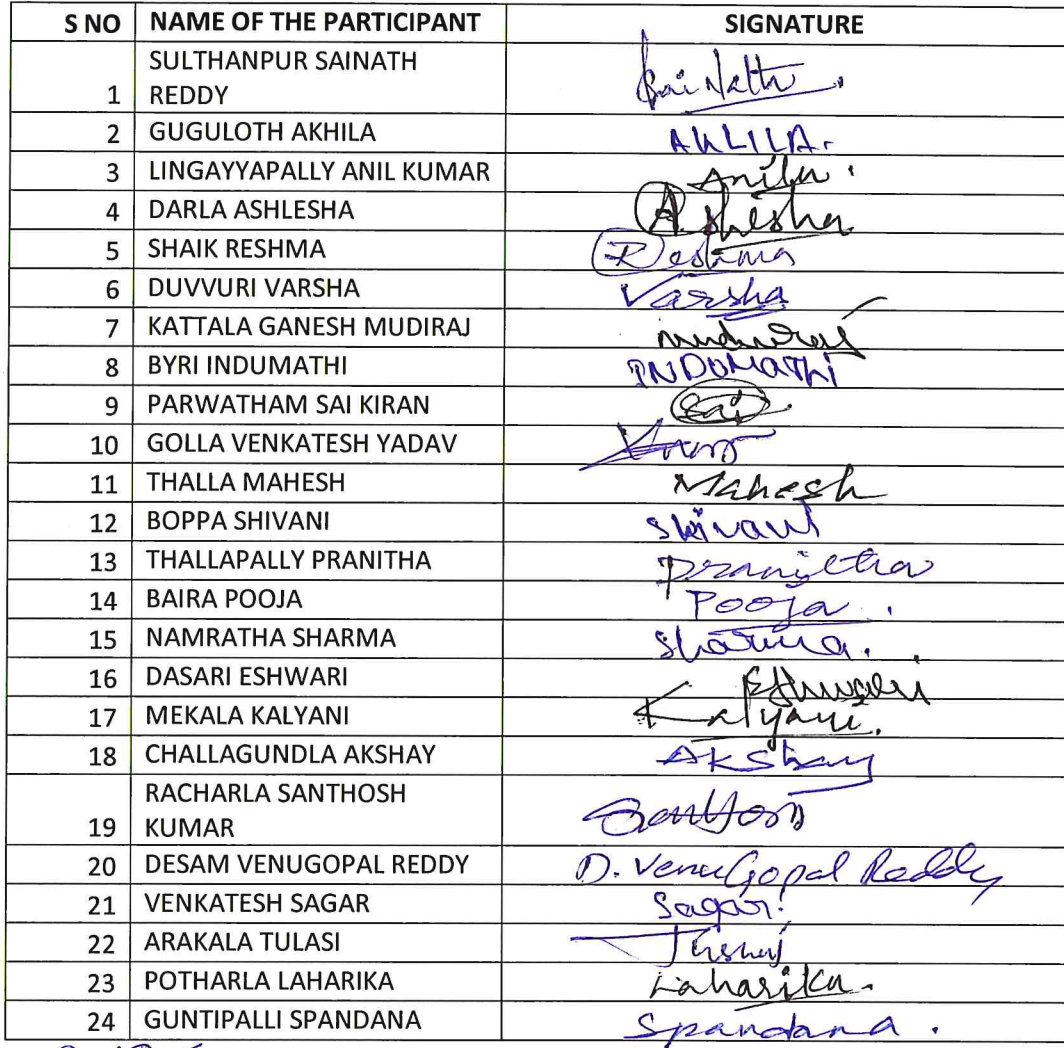 S NO NAME OF THE PARTICIPANT SIGNATURE
SULTHANPUR SAINATH
1 REDDY Sai Nath.
2 GUGULOTH AKHILA AKLILA.
3 LINGAYYAPALLY ANIL KUMAR
4 DARLA ASHLESHA Ashlesha
5 SHAIK RESHMA Reshma
6 DUVVURI VARSHA Varsha
7 KATTALA GANESH MUDIRAJ mudiraj
8 BYRI INDUMATHI INDUMATHI
9 PARWATHAM SAI KIRAN Sai
10 GOLLA VENKATESH YADAV
11 THALLA MAHESH Mahesh
12 BOPPA SHIVANI Shivani
13 THALLAPALLY PRANITHA Pranitha
14 BAIRA POOJA Pooja.
15 NAMRATHA SHARMA Sharma.
16 DASARI ESHWARI Eshwari
17 MEKALA KALYANI Kalyani.
18 CHALLAGUNDLA AKSHAY Akshay
RACHARLA SANTHOSH
19 KUMAR Santosh
20 DESAM VENUGOPAL REDDY D. VenuGopal Reddy
21 VENKATESH SAGAR Sagar
22 ARAKALA TULASI
23 POTHARLA LAHARIKA Laharika.
24 GUNTIPALLI SPANDANA Spandana.